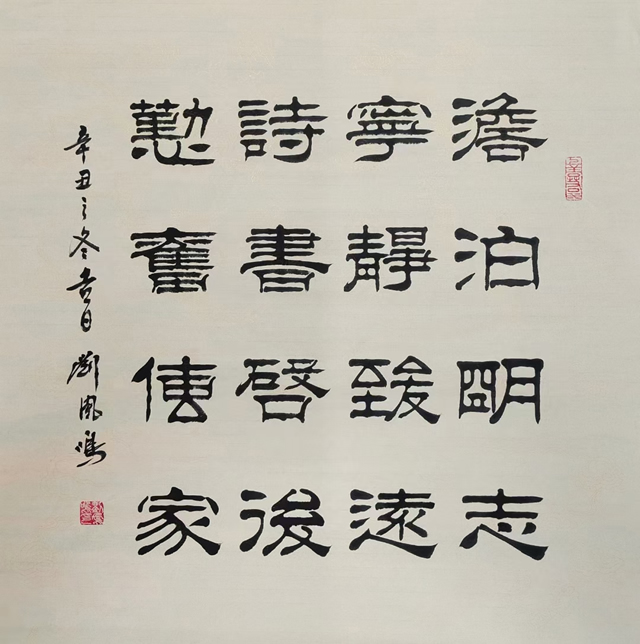 澹泊明志
寧靜致遠
詩書啓後
懃奮傳家
辛丑之冬吉日 劉鳳鳴